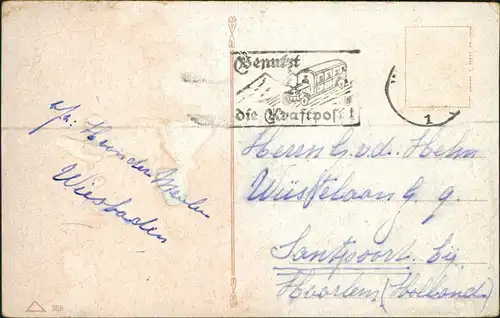 Benutzt
die Kraftpost!
1
Wiesbaden
Herrn G. v. d. Helm
Wüstelaan 99.
Santpoort bij
Haarlem (Holland)